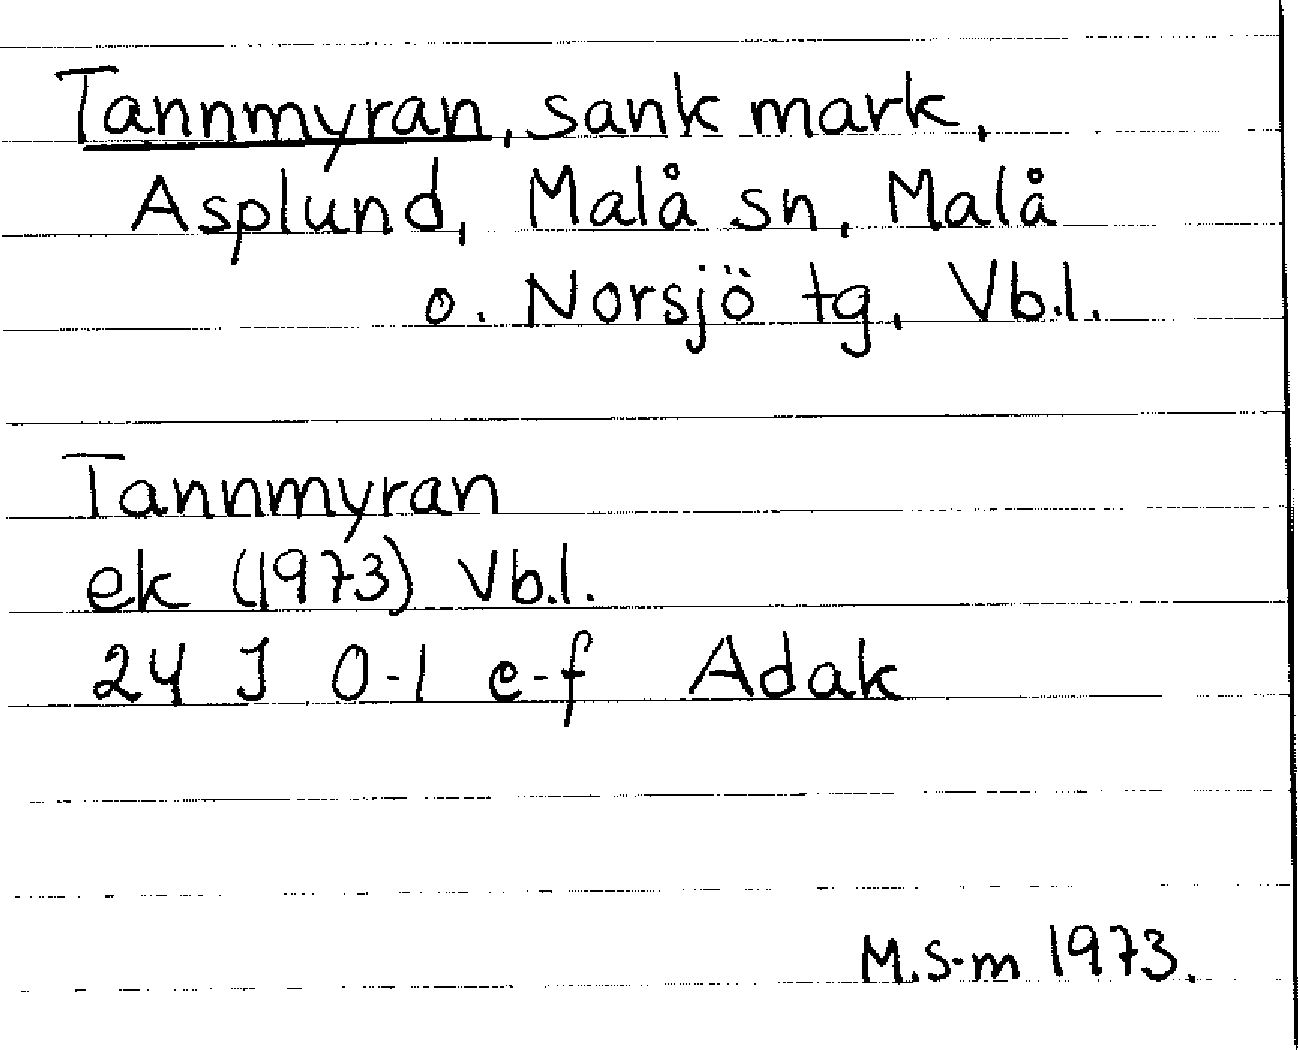 Tannmyran, sank mark,
Asplund, Malå sn, Malå
o. Norsjö tg, Vb.l.
Tannmyran
ek (1973) Vb.l.
24 J 0-1 e-f Adak
M.S-m 1973.